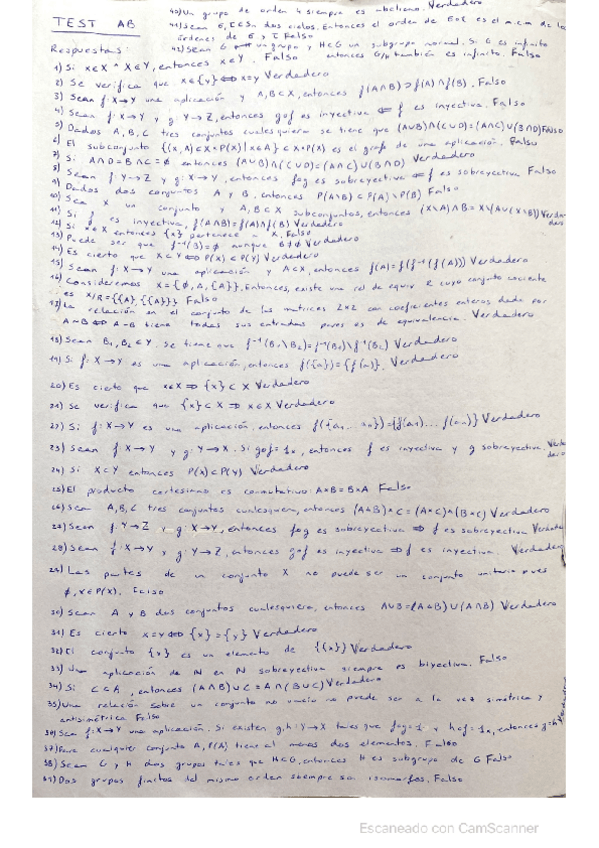 TEST AB
40) Un grupo de orden 4 siempre es abeliano. Verdadero
41) Sean σ, τ ∈ Sn dos ciclos. Entonces el orden de σoτ es el m.c.m de los
órdenes de σ y τ Falso
42) Sean G un grupo y H⊂G un subgrupo normal. Si G es infinito
entonces G/H también es infinito. Falso
Respuestas:
1) Si x∈X ∧ X∈Y, entonces x∈Y. Falso
2) Se verifica que x∈{y} ⇔ x=y Verdadero
3) Sean f:X→Y una aplicación y A,B⊂X, entonces f(A∩B)⊃f(A)∩f(B). Falso
4) Sean f:X→Y y g:Y→Z, entonces gof es inyectiva ⇐ f es inyectiva. Falso
5) Dados A, B, C tres conjuntos cualesquiera se tiene que (A∪B)∩(C∪D)=(A∩C)∪(B∩D) Falso
6) El subconjunto {(x,A)∈X×P(X)|x∈A} ⊂ X×P(X) es el grafo de una aplicación. Falso
7) Si A∩D=B∩C=∅ entonces (A∪B)∩(C∪D)=(A∩C)∪(B∩D) Verdadero
8) Sean f:Y→Z y g:X→Y, entonces fog es sobreyectiva ⇐ f es sobreyectiva Falso
9) Dados dos conjuntos A y B, entonces P(A\B)⊂P(A)\P(B) Falso
10) Sea X un conjunto y A,B⊂X subconjuntos, entonces (X\A)∩B=X\(A∪(X\B)) Verdadero
11) Si f es inyectiva, f(A∩B)=f(A)∩f(B) Verdadero
12) Si x∈X entonces {x} pertenece a X. Falso
13) Puede ser que f⁻¹(B)=∅ aunque B≠∅ Verdadero
14) Es cierto que X⊂Y ⇔ P(X)⊂P(Y) Verdadero
15) Sean f:X→Y una aplicación y A⊂X, entonces f(A)=f(f⁻¹(f(A))) Verdadero
16) Consideremos X={∅,A,{A}}. Entonces, existe una rel de equiv R cuyo conjunto cociente
es X/R={{A},{{A}}} Falso
17) La relación en el conjunto de las matrices 2x2 con coeficientes enteros dada por
A~B ⇔ A-B tiene todas sus entradas pares es de equivalencia. Verdadero
18) Sean B₁,B₂⊂Y. Se tiene que f⁻¹(B₁\B₂)=f⁻¹(B₁)\f⁻¹(B₂) Verdadero
19) Si f:X→Y es una aplicación, entonces f({a})={f(a)}. Verdadero
20) Es cierto que x∈X ⇒ {x}⊂X Verdadero
21) Se verifica que {x}⊂X ⇒ x∈X Verdadero
22) Si f:X→Y es una aplicación, entonces f({a₁...aₙ})={f(a₁)...f(aₙ)} Verdadero
23) Sean f:X→Y y g:Y→X. Si gof=1x, entonces f es inyectiva y g sobreyectiva. Verdadero
24) Si X⊂Y entonces P(X)⊂P(Y) Verdadero
25) El producto cartesiano es conmutativo: A×B=B×A Falso
26) Sean A,B,C tres conjuntos cualesquiera, entonces × C = (A×C) (B×C) Verdadero
27) Sean f:Y→Z y g:X→Y, entonces fog es sobreyectiva ⇒ f es sobreyectiva Verdadero
28) Sean f:X→Y y g:Y→Z, entonces gof es inyectiva ⇒ f es inyectiva. Verdadero
29) Las partes de un conjunto X no puede ser un conjunto unitario pues
∅,X∈P(X). Falso
30) Sean A y B dos conjuntos cualesquiera, entonces A∪B=(A∆B)∪(A∩B) Verdadero
31) Es cierto x=y ⇔ {x}={y} Verdadero
32) El conjunto {x} es un elemento de {{x}} Verdadero
33) Una aplicación de N en N sobreyectiva siempre es biyectiva. Falso
34) Si C⊂A, entonces (A∩B)∪C=A∩(B∪C) Verdadero
35) Una relación sobre un conjunto no vacío no puede ser a la vez simétrica y
antisimétrica Falso
36) Sea f:X→Y una aplicación. Si existen g,h:Y→X tales que fog=1 y hof=1x, entonces g=h Verdadero
37) Para cualquier conjunto A, P(A) tiene al menos dos elementos. Falso
38) Sean G y H dos grupos tales que H⊂G, entonces H es subgrupo de G Falso
39) Dos grupos finitos del mismo orden siempre son isomorfos. Falso
Escaneado con CamScanner